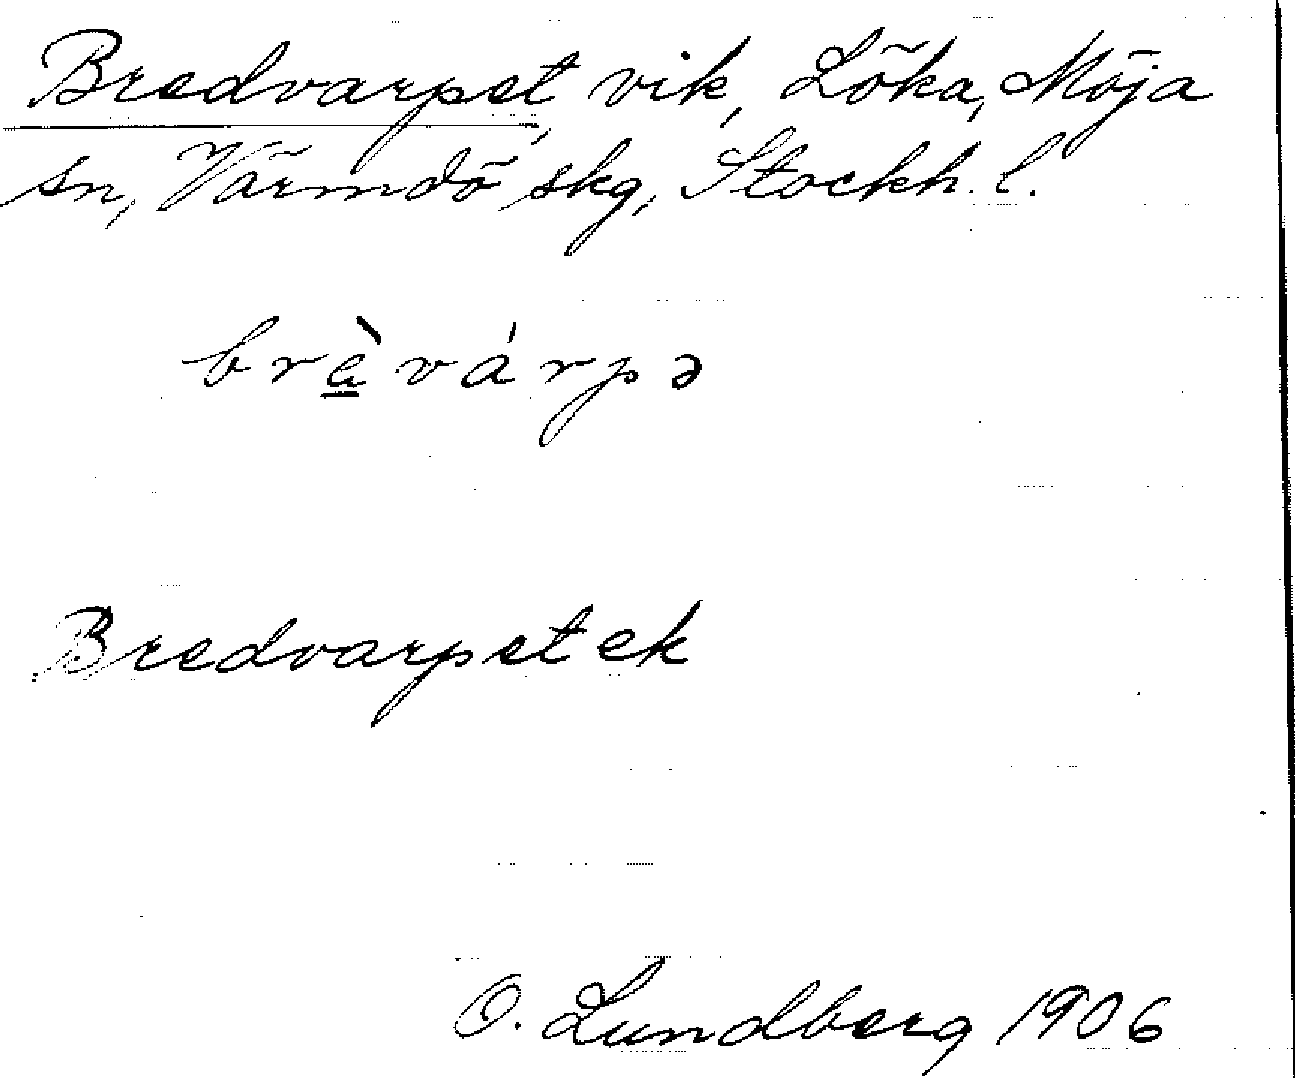 Bredvarpet, vik, Löka, Möja
sn, Värmdö skg, Stockh. l.
brè̱várpə
Bredvarpet ek
O. Lundberg 1906